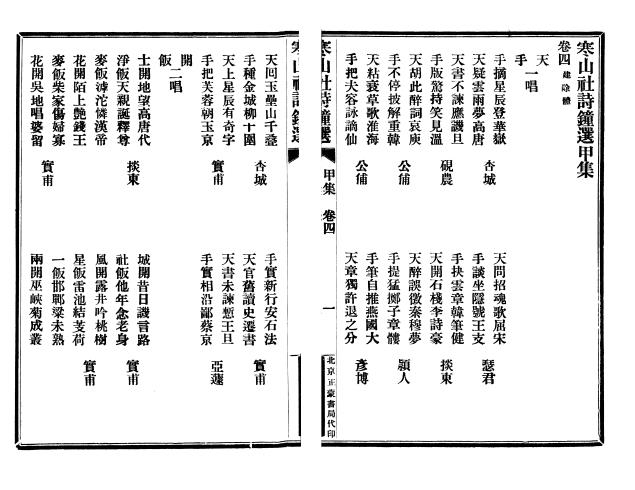 寒山社詩鐘選甲集
卷四 建除體
天
手 一唱
手摘星辰登華嶽
天疑雲雨夢高唐
杏城
天問招魂歌屈宋
手談坐隱號王支
瑟君
天書不諫應譏旦
手版驚持笑見溫
硯農
手抉雲章韓筆健
天開石棧李詩豪
掞東
天胡此醉詞哀庾
手不停披解重韓
公俌
天醉誤徵秦穆夢
手提猛擲子章髏
潁人
天粘衰草歌淮海
手把夫容詠謫仙
公俌
手筆自推燕國大
天章獨許退之分
彥博
寒山社詩鐘選
甲集
卷四
一
北京正蒙書局代印
天回玉壘山千疊
手種金城柳十圍
杏城
手實新行安石法
天官舊讀史遷書
實甫
天上星辰有奇字
手把芙蓉朝玉京
實甫
天書未諫慙王旦
手實相沿鄙蔡京
亞蘧
開
飯 二唱
士開地望高唐代
淨飯天親誕釋尊
掞東
城開昔日譏言路
社飯他年念老身
實甫
麥飯滹沱憐漢帝
花開陌上艷錢王
風開露井吟桃樹
星飯雷池結芰荷
實甫
麥飯柴家傷婦寡
花開吳地唱婆留
實甫
一飯邯鄲粱未熟
兩開巫峽菊成叢